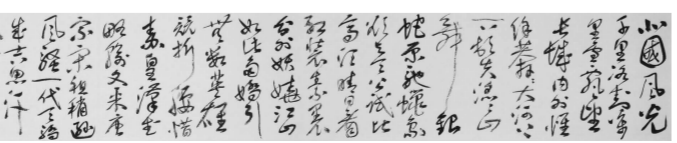 北國風光
千里冰封萬
里雪飄望
長城內外惟
餘莽莽大河上
下頓失滔滔山
舞銀
蛇原馳蠟象
欲與天公試比
高須晴日看
紅裝素裹
分外妖嬈江山
如此多嬌引
無數英雄
競折腰惜
秦皇漢武
略輸文采唐
宗宋祖稍遜
風騷一代天驕
成吉思汗